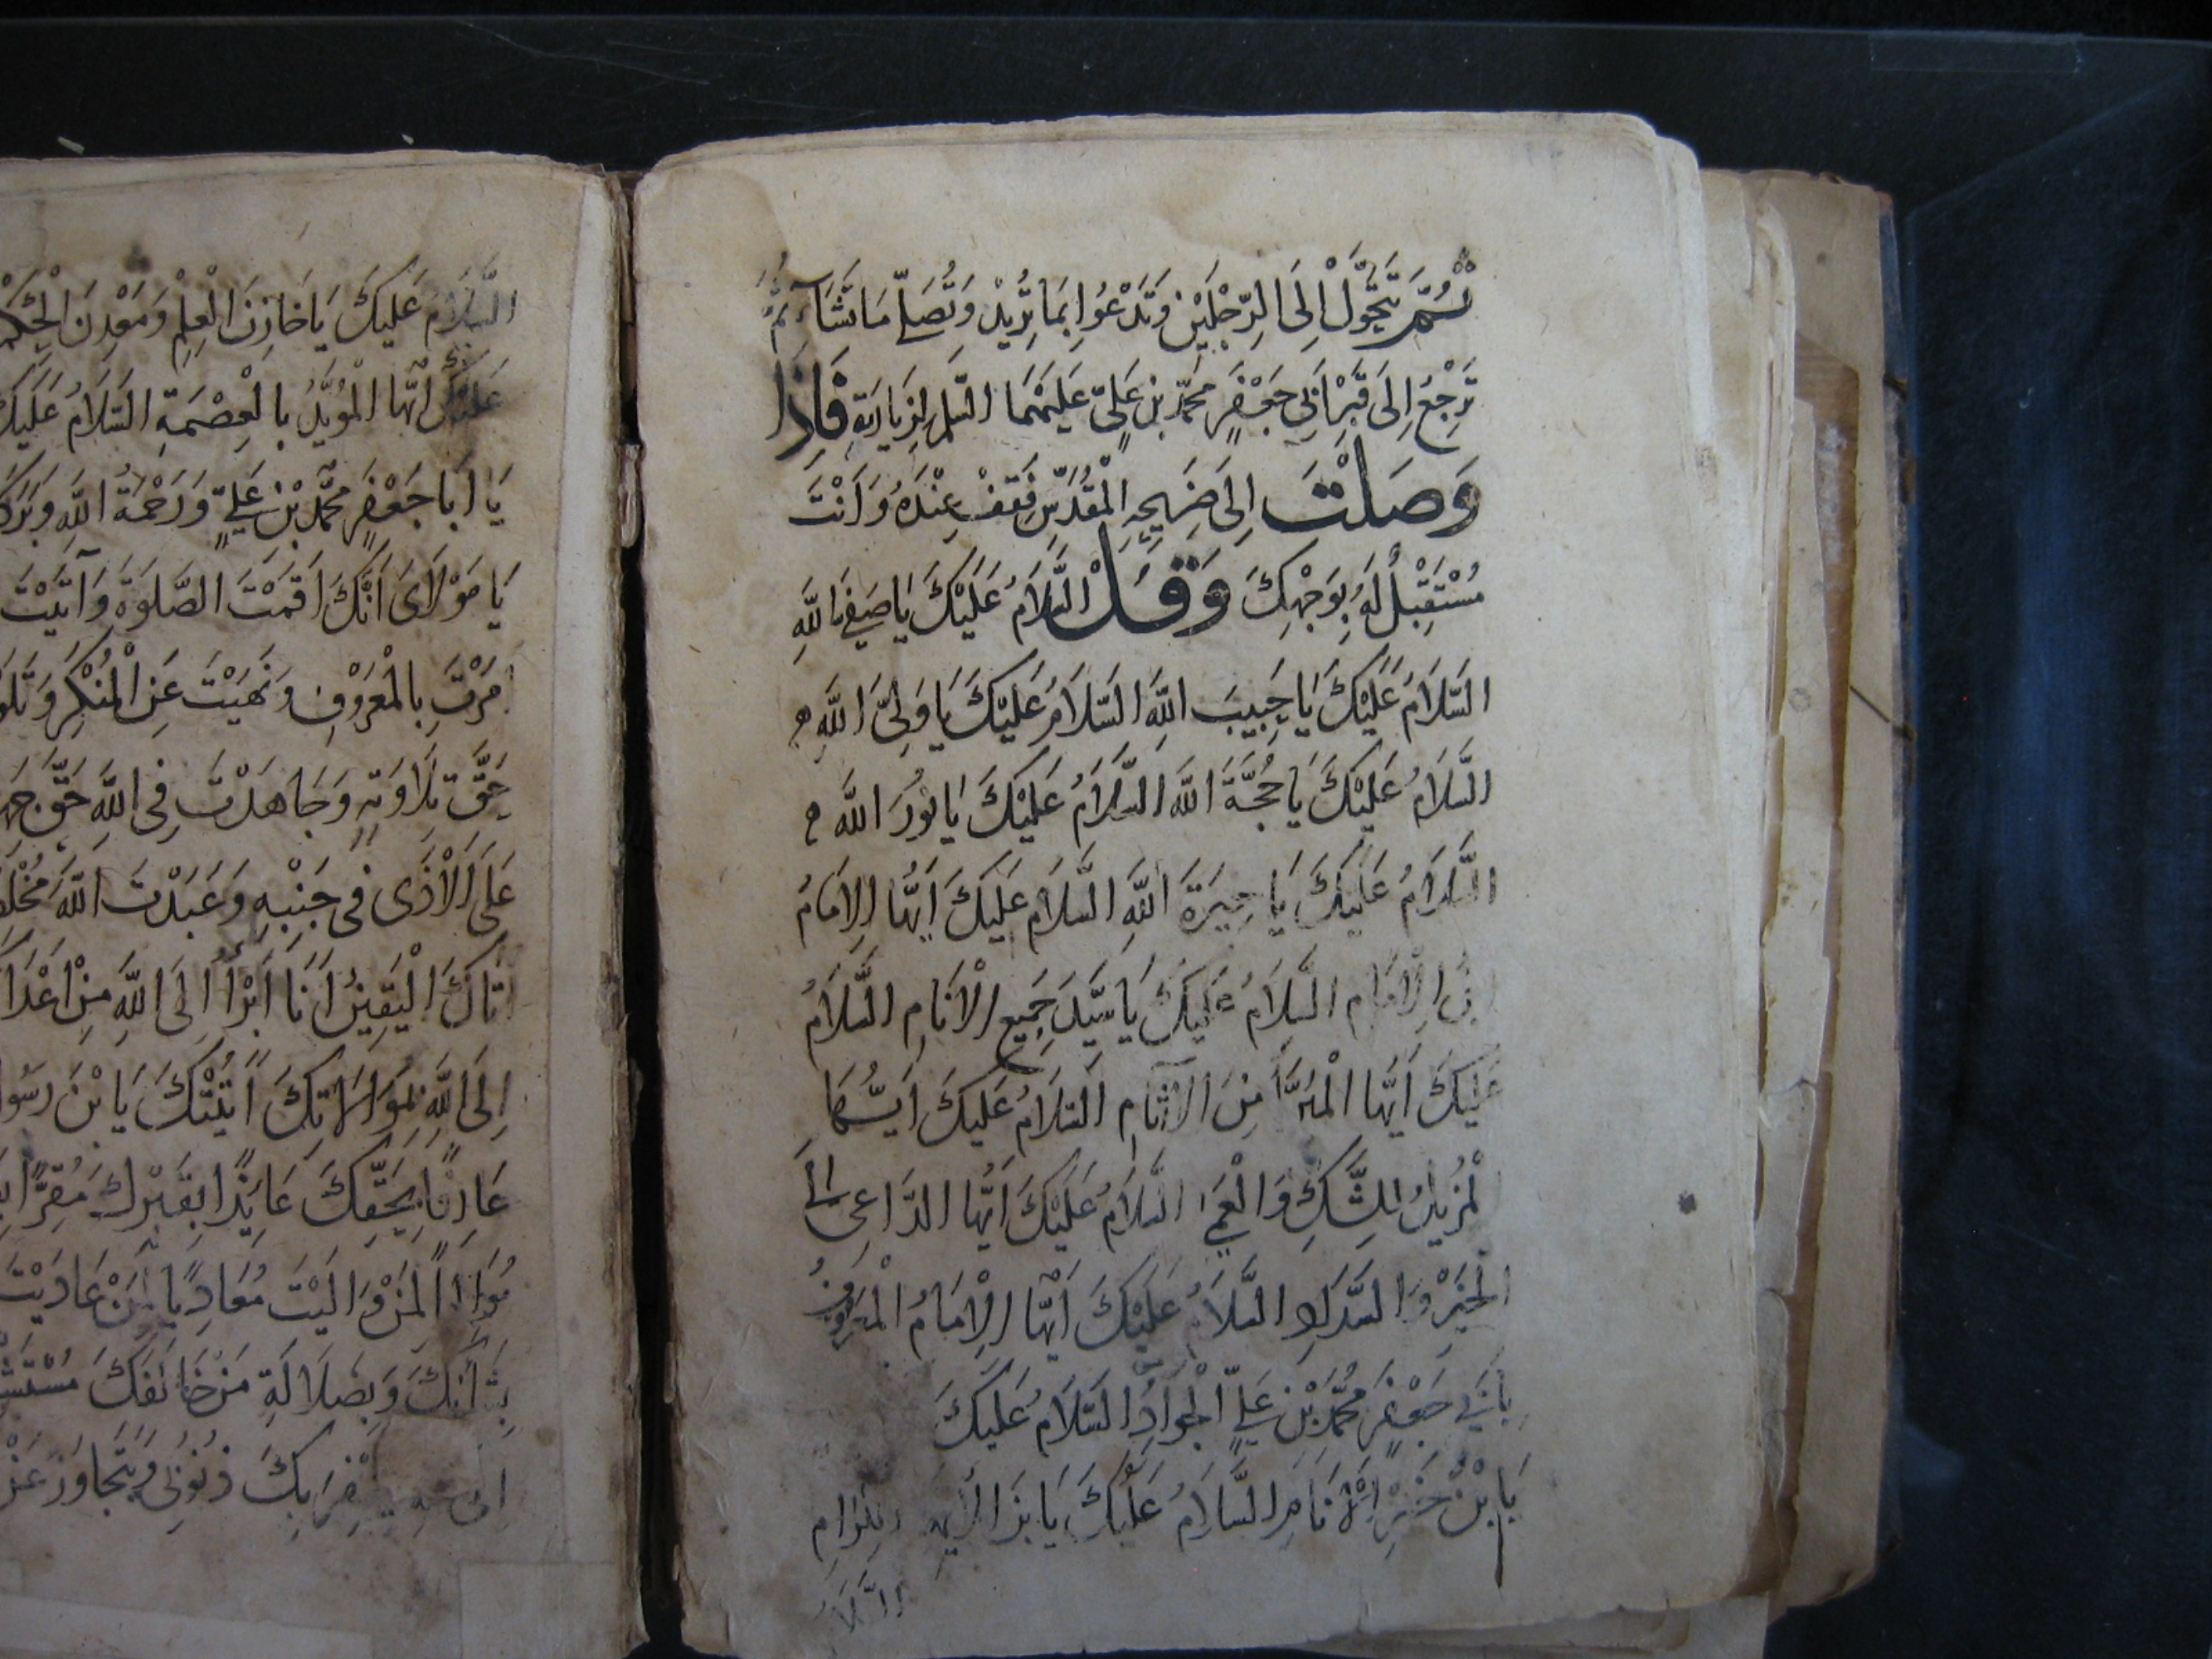 ثُمَّ تَتَحَوَّلْ اِلَى الرِّجْلَيْنِ وَتَدْعُوا بِمَا تُرِيْدُ وَتُصَلِّ مَا تَشَآءُ ثُمَّ
تَرْجِعُ اِلَى قَبْرِ اَبِي جَعْفَرٍ مُحَمَّدِ بْنِ عَلِيٍّ عَلَيْهِمَا السَّلم لِزِيَارَتِهِ فَاِذَا
وَصَلْتَ اِلَى ضَرِيحِهِ الْمُقَدَّسِ فَقِفْ عِنْدَهُ وَاَنْتَ
مُسْتَقْبِلٌ لَهُ بِوَجْهِكَ وَقُلْ السَّلَامُ عَلَيْكَ يَا صَفِيَّ اللَّهِ
السَّلَامُ عَلَيْكَ يَا حَبِيبَ اللَّهِ السَّلَامُ عَلَيْكَ يَا وَلِيَّ اللَّهِ
السَّلَامُ عَلَيْكَ يَا حُجَّةَ اللَّهِ السَّلَامُ عَلَيْكَ يَا نُورَ اللَّهِ
السَّلَامُ عَلَيْكَ يَا خِيَرَةَ اللَّهِ السَّلَامُ عَلَيْكَ اَيُّهَا الْاِمَامُ
بْنُ الْاِمَامِ السَّلَامُ عَلَيْكَ يَا سَيِّدَ جَمِيعِ الْاَنَامِ السَّلَامُ
عَلَيْكَ اَيُّهَا الْمُبَرَّأُ مِنَ الْآثَامِ السَّلَامُ عَلَيْكَ اَيُّهَا
الْمُزِيلُ لِلشَّكِّ وَالْعَمَى السَّلَامُ عَلَيْكَ اَيُّهَا الدَّاعِي اِلَى
الْخَيْرِ وَالسَّدَادِ السَّلَامُ عَلَيْكَ اَيُّهَا الْاِمَامُ الْمَعْرُوفُ
بِاَبِي جَعْفَرٍ مُحَمَّدِ بْنِ عَلِيٍّ الْجَوَادِ السَّلَامُ عَلَيْكَ
يَا بْنَ خَيْرِ الْاَنَامِ السَّلَامُ عَلَيْكَ يَا بْنَ الْاَئِمَّةِ الْكِرَامِ
السَّلَا
السَّلَامُ عَلَيْكَ يَا خَازِنَ الْعِلْمِ وَمَعْدِنَ الْحِكْمَ
عَلَيْكَ اَيُّهَا الْمُؤَيَّدُ بِالْعِصْمَةِ السَّلَامُ عَلَيْكَ
يَا اَبَا جَعْفَرٍ مُحَمَّدَ بْنَ عَلِيٍّ وَرَحْمَةُ اللَّهِ وَبَرَكَ
يَا مَوْلَايَ اَنَّكَ اَقَمْتَ الصَّلَوةَ وَآتَيْتَ
اَمَرْتَ بِالْمَعْرُوْفِ وَنَهَيْتَ عَنِ الْمُنْكَرِ وَتَلَوْ
حَقَّ تِلَاوَتِهِ وَجَاهَدْتَ فِي اللَّهِ حَقَّ جِهَ
عَلَى الْاَذَى فِي جَنْبِهِ وَعَبَدْتَ اللَّهَ مُخْلِصً
اَتَاكَ الْيَقِينُ اَنَا اَبْرَأُ اِلَى اللَّهِ مِنْ اَعْدَا
اِلَى اللَّهِ بِمُوَالَاتِكَ اَتَيْتُكَ يَا بْنَ رَسُو
عَارِفًا بِحَقِّكَ عَايِذًا بِقَبْرِكَ مُقِرًّا بِ
مُوَالِيًا لِمَنْ وَالَيْتَ مُعَادِيًا لِمَنْ عَادَيْتَ
بِشَأْنِكَ وَبِضَلَالَةِ مَنْ خَالَفَكَ مُسْتَشْ
ذُنُوبِي وَيَتَجَاوَزَ عَنْ